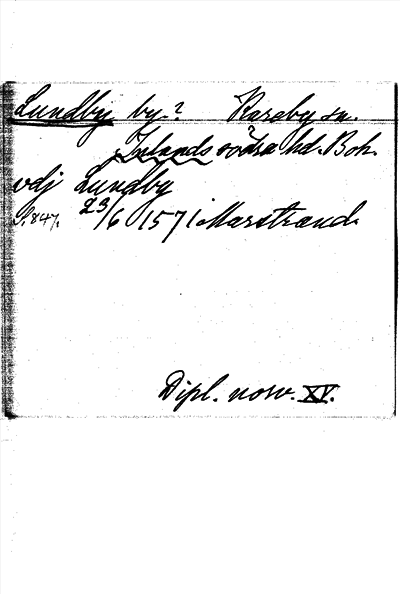 Lundby by? Kareby sn.
Inlands södra hd. Boh.
vdj Lundby
S. 847. 23/6 1571 Marstrand.
Dipl. norv. XV.